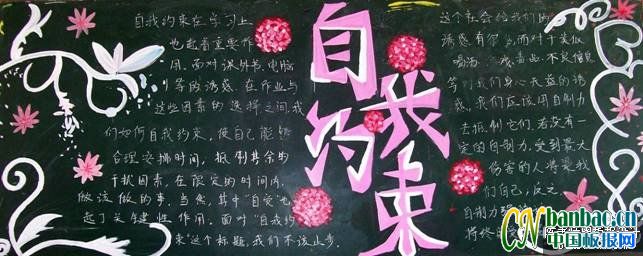 自我约束在学习上
也起着重要作
用,面对课外书、电脑
等的诱惑,在作业与
这些因素的选择之间,我
们如何自我约束,使自己能够
合理安排时间,抵制其余的
干扰因素,在限定的时间内,
做该做的事,当然,其中"自觉"也
起了关键性作用,面对"自我约
束"这个标题,我们不该止步。
自我约束
这个社会给我们的
诱惑有很多,面对
等对我们身心无益的诱
惑,我们应该用自制力
去抵制它们,若没有一
定的自制力,受到最大
伤害的人将是我
们自己,反之
自制力
将终
CN banbao.cn
中国板报网